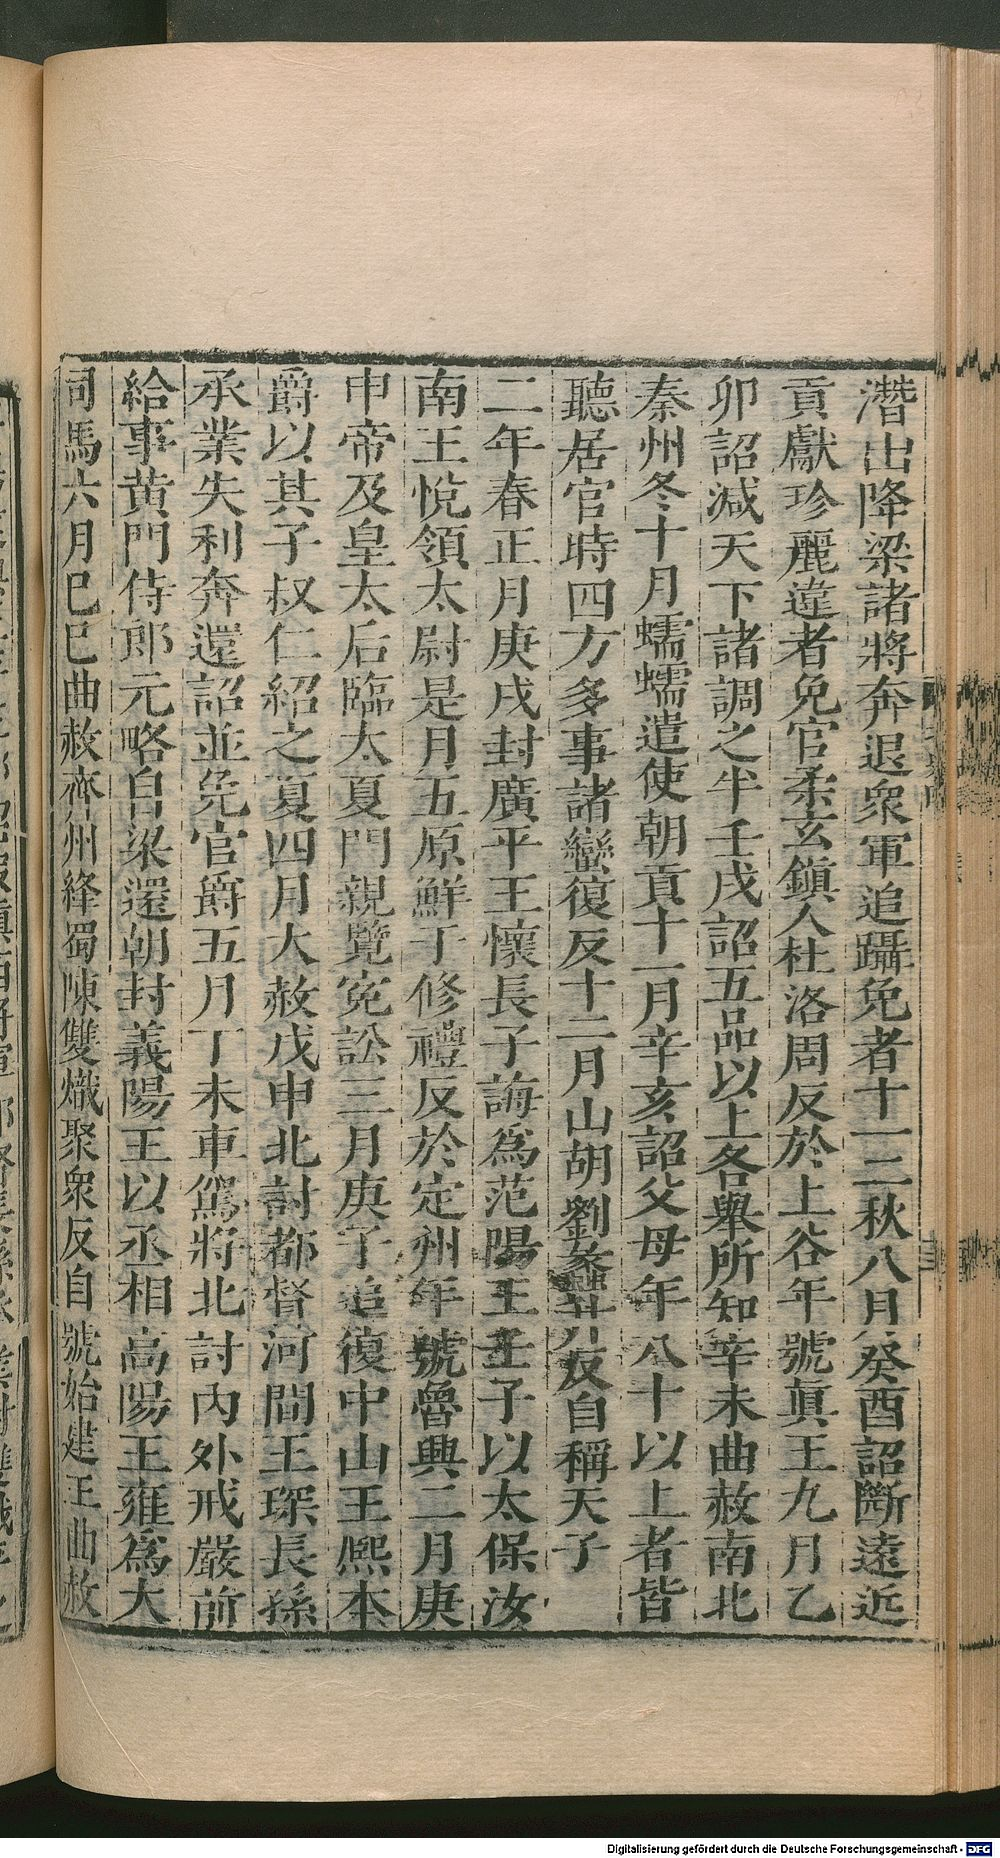 潛出降梁諸將奔退眾軍追躡免者十一二秋八月癸酉詔斷遠近
貢獻珍麗違者免官柔玄鎮人杜洛周反於上谷年號眞王九月乙
卯詔減天下諸調之半壬戌詔五品以上各舉所知辛未曲赦南北
秦州冬十月蠕蠕遣使朝貢十一月辛亥詔父母年八十以上者皆
聽居官時四方多事諸蠻復反十二月山胡劉蠡升反自稱天子
二年春正月庚戌封廣平王懷長子誨爲范陽王壬子以太保汝
南王悅領太尉是月五原鮮于修禮反於定州年號魯興二月庚
申帝及皇太后臨大夏門親覽冤訟三月庚子追復中山王熙本
爵以其子叔仁紹之夏四月大赦戊申北討都督河間王琛長孫
承業失利奔還詔並免官爵五月丁未車駕將北討內外戒嚴前
給事黃門侍郎元略自梁還朝封義陽王以丞相高陽王雍爲大
司馬六月巳巳曲赦齊州絳蜀陳雙熾聚眾反自號始建王曲赦
Digitalisierung gefördert durch die Deutsche Forschungsgemeinschaft - DFG